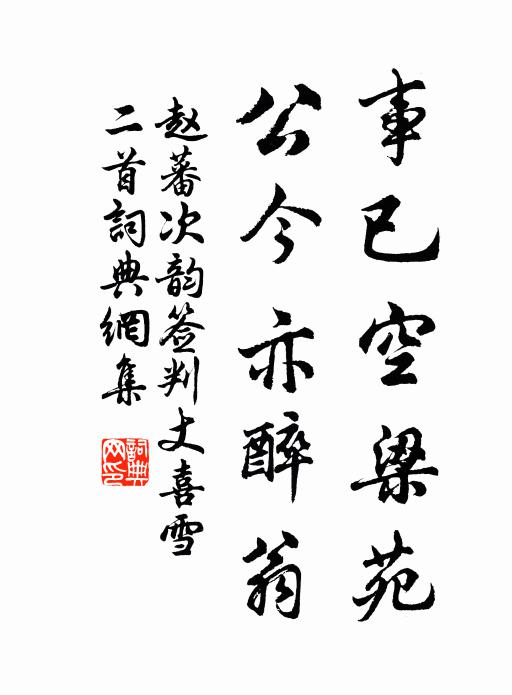 事已空梁苑
公今亦醉翁
赵蕃次韵签判丈喜雪
二首詞典網集
詞典
网印